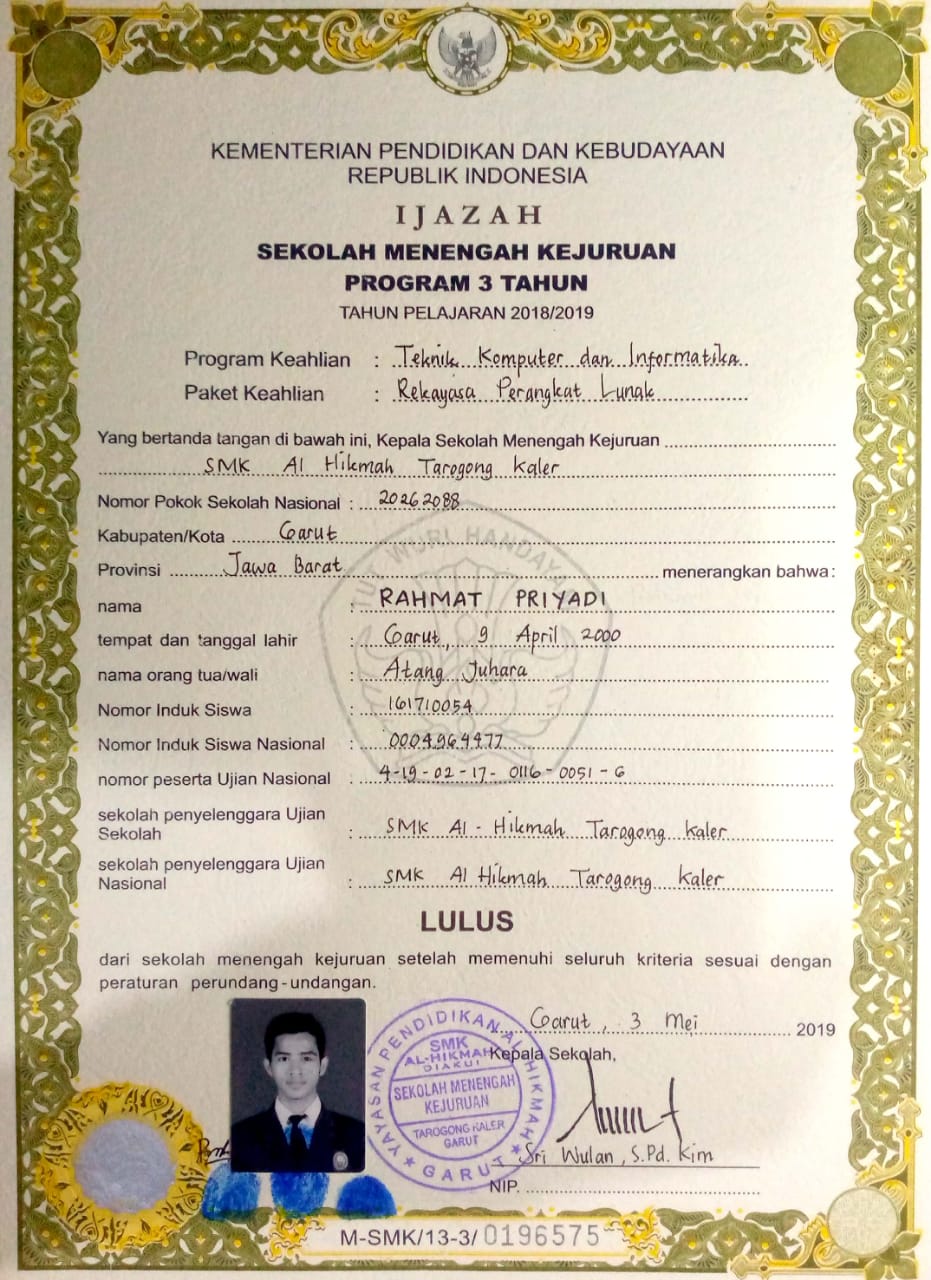 KEMENTERIAN PENDIDIKAN DAN KEBUDAYAAN
REPUBLIK INDONESIA
IJAZAH
SEKOLAH MENENGAH KEJURUAN
PROGRAM 3 TAHUN
TAHUN PELAJARAN 2018/2019
Program Keahlian : Teknik Komputer dan Informatika
Paket Keahlian : Rekayasa Perangkat Lunak
Yang bertanda tangan di bawah ini, Kepala Sekolah Menengah Kejuruan
SMK Al Hikmah Tarogong Kaler
Nomor Pokok Sekolah Nasional : 20262088
Kabupaten/Kota Garut
Provinsi Jawa Barat menerangkan bahwa:
nama : RAHMAT PRIYADI
tempat dan tanggal lahir : Garut, 9 April 2000
nama orang tua/wali : Atang Juhara
Nomor Induk Siswa : 161710054
Nomor Induk Siswa Nasional : 0004964477
nomor peserta Ujian Nasional : 4-19-02-17-0116-0051-6
sekolah penyelenggara Ujian
Sekolah : SMK Al-Hikmah Tarogong Kaler
sekolah penyelenggara Ujian
Nasional : SMK Al Hikmah Tarogong Kaler
TUT WURI HANDAYANI
LULUS
dari sekolah menengah kejuruan setelah memenuhi seluruh kriteria sesuai dengan
peraturan perundang-undangan.
Garut, 3 Mei 2019
Kepala Sekolah,
YAYASAN PENDIDIKAN AL-HIKMAH
SMK
AL-HIKMAH
DIAKUI
SEKOLAH MENENGAH
KEJURUAN
TAROGONG KALER
GARUT
GARUT
Sri Wulan, S.Pd. Kim
NIP.
M-SMK/13-3/0196575